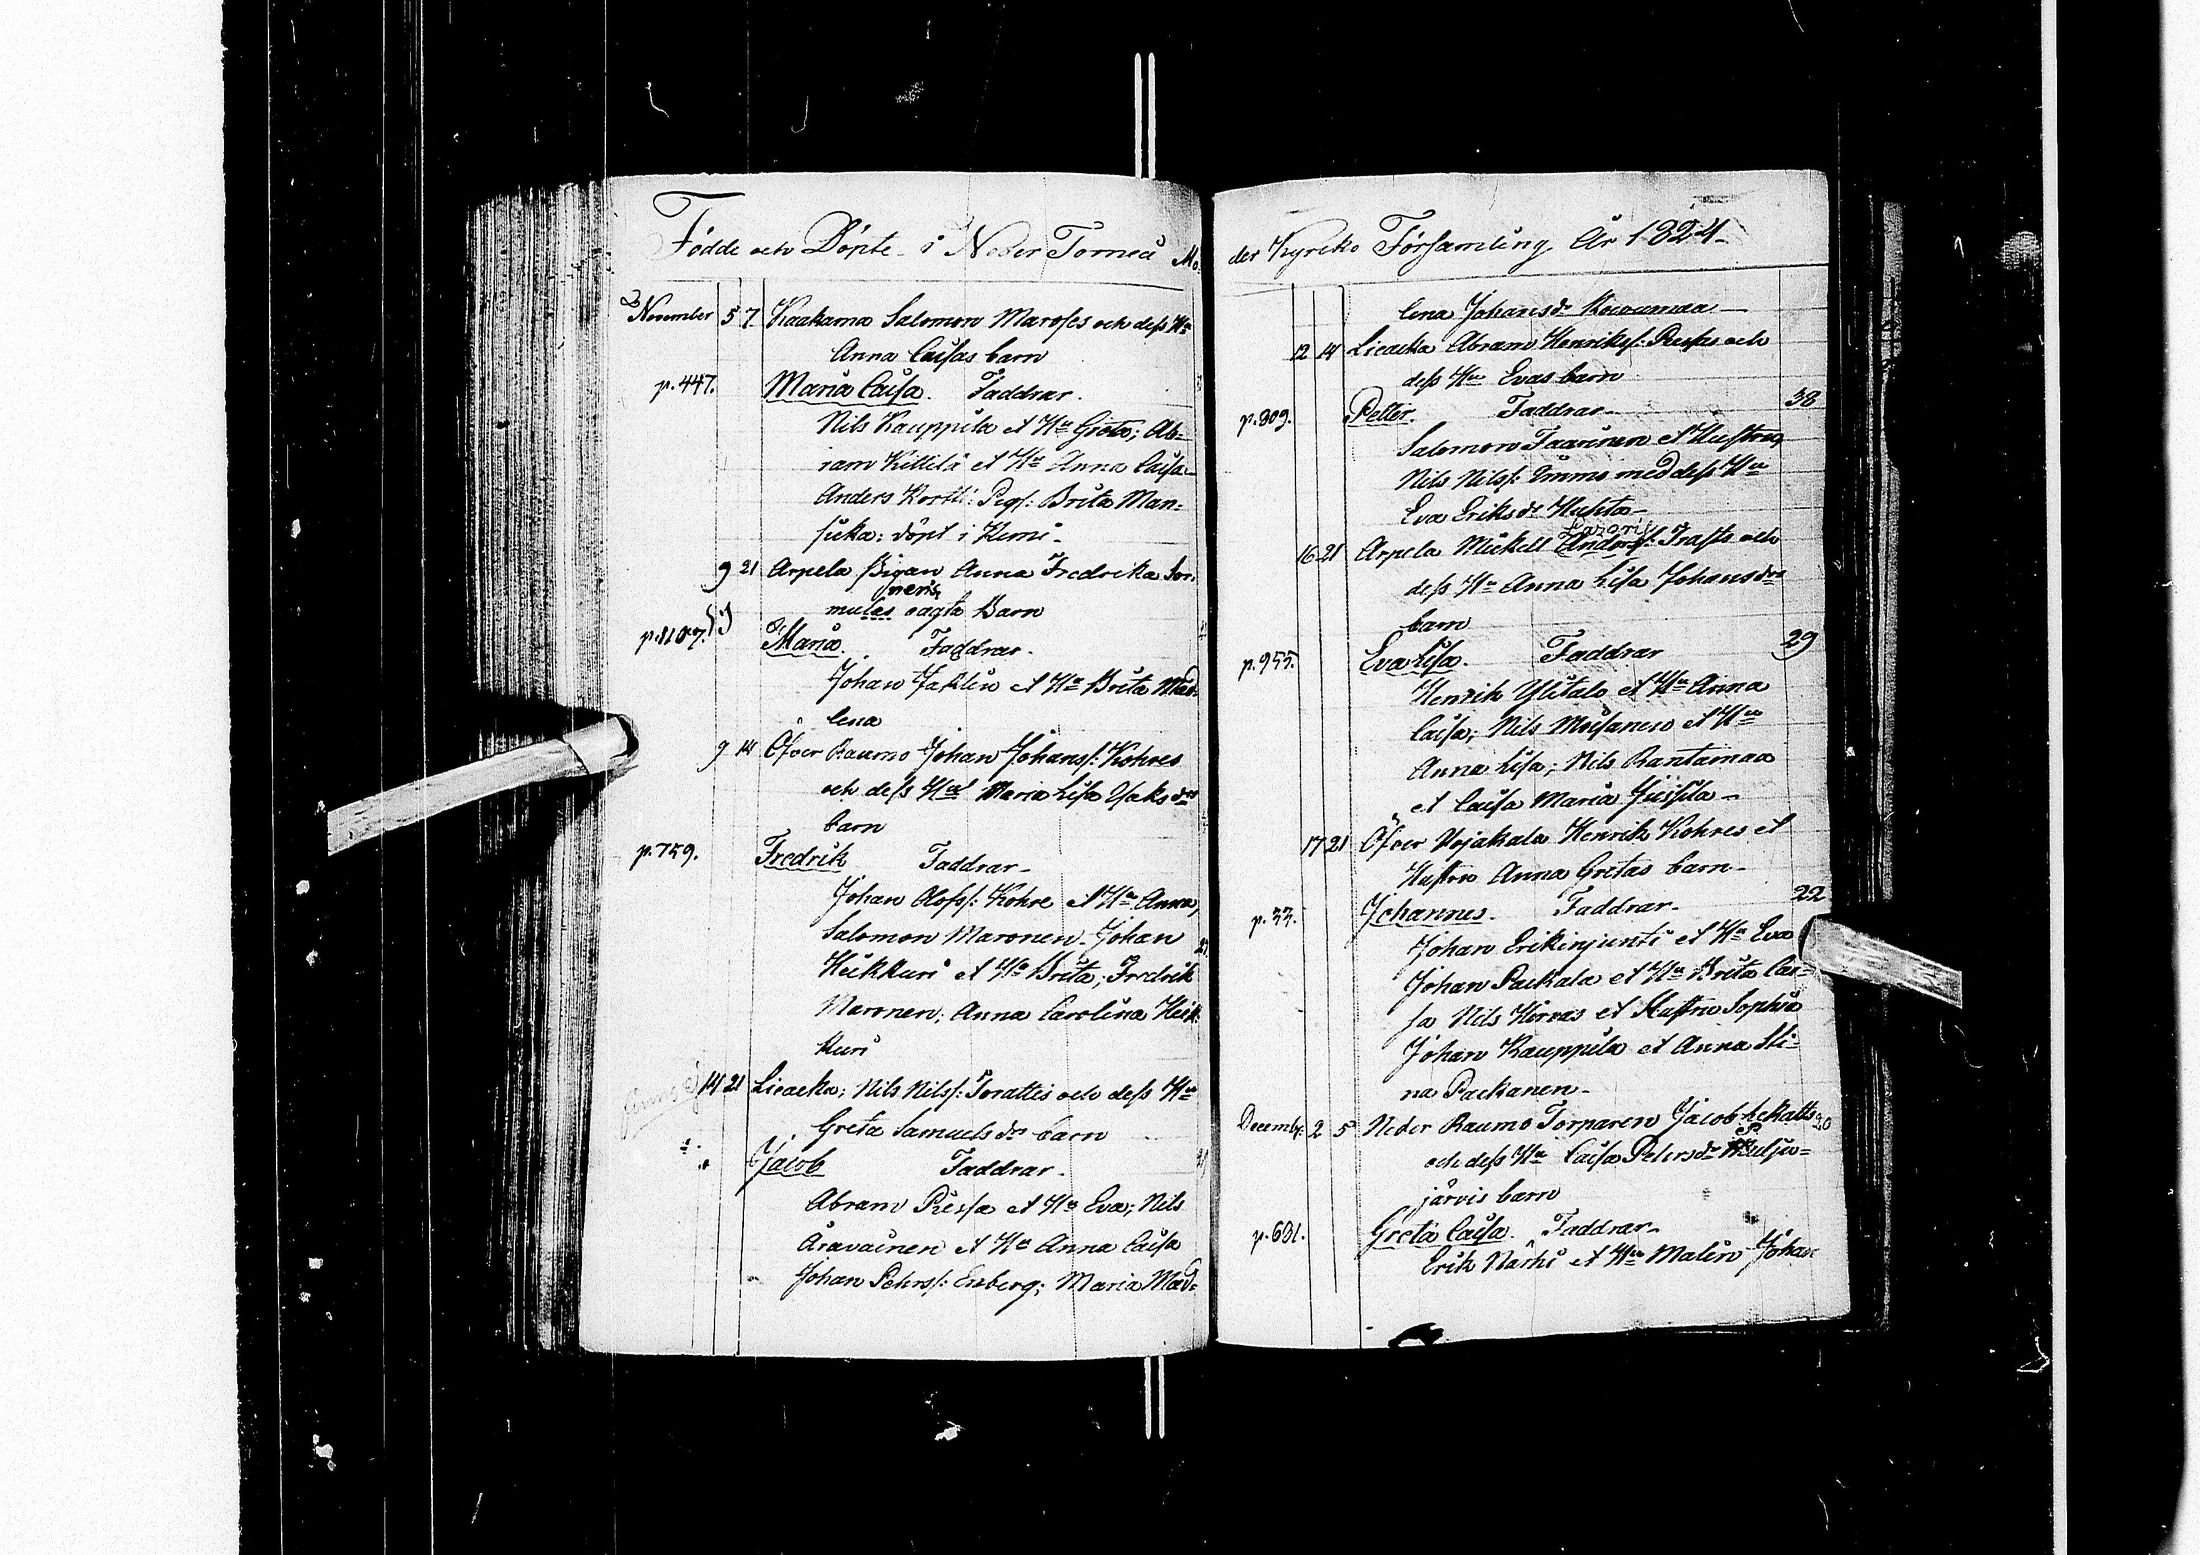 Födde och Döpte i Neder Torneå Mo
November 5 7. Kaakama Salomon Maroses och dess Hu
Anna Caisas barn
p. 447. Maria Caisa. Faddrar.
Nils Kauppila et Hu Greta; Ab-
ram Kittilä et Hu Anna Caisa
Anders Pig: Brita Man-
sicka: döpt i Kemi.
9 21 Arpela Pigan Anna Fredrika
oägta Barn
Maria. Faddrar.
Johan et Hu Brita Mad-
lena
9 14 Öfver Raumo Johan Johanss: Kohres
och dess Hus Maria Lisa Isaksdrs
barn
p. 759. Fredrik Faddrar
Johan Olofss: Kohre et Hu Anna,
Salomon Maronen. Johan
Heikkuri et Hu Brita; Fredrik
Maronen; Anna Carolina Heik-
kuri
14 21 Liakka; Nils Nilss: och dess Hu
Greta Samuelsdrs barn
Jacob Faddrar.
Abram Piessa et Hu Eva; Nils
Aravainen et Hu Anna Caisa
Johan Pehrss: Enberg; Maria Mad-
der Kyrko Församling År 1824
lena Johansdr
12 14 Liacka Abram Henrikss: och
dess Hu Evas barn
p. 809. Petter. Faddrar 38
Salomon Taavinen et Hustru,
Nils Nilss: Immo med dess Hu
Eva Eriksdr Huhta
16 21 Arpela Mickell och
dess Hu Anna Lisa Johansdrs
barn
p. 955. Eva Lisa. Faddrar 29
Henrik Ylitalo et Hu Anna
Caisa; Nils Moisanen et Hu
Anna Lisa; Nils Rantamaa
et Caisa Maria
17 21 Öfver Vojakala Henrik Kohres et
Hustru Anna Gretas barn
p. 33. Johannes. Faddrar 22
Johan Erikinjunti et Hu Eva
Johan Packala et Hu Brita Cai-
sa Nils Hirvas et Hustru Sophia
Johan Kauppila et Anna Sti-
na Packanen
Decembr: 2 5 Neder Raumo Torparen Jacob 20
och dess Hu Caisa Petersdr
järvis barn
p. 631. Greta Caisa. Faddrar
Erik Närhi et Hu Malin Johan